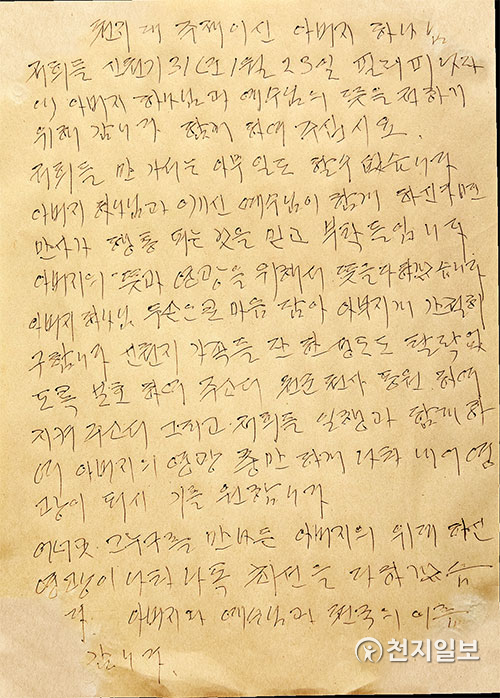 천지 대 주재이신 아버지 하나님
저희들 신천기 31년 1월 23일 필리피나라
에 아버지 하나님과 예수님의 뜻을 전하기
위해 갑니다 함께 하여 주십시오.
저희들만 가서는 아무 일도 할 수 없습니다
아버지 하나님과 예수님이 함께 하신다면
만사가 형통 되는 것을 믿고 부탁들입니다
아버지의 뜻과 영광을 위해서 뜻을 다하겠습니다
아버지 하나님 두손으로 마음 담아 아버지께 간절히
구합니다 선한지 가족들 단 한 성도도 탈락없
도록 보호 하여 주소서 천사 동원 하여
지켜 주소서 그리고 저희들 일행과 함께 하
여 아버지의 영광 충만 하게 나타 내어 영
광이 되시기를 원합니다
어너곳 그누구를 만나든 아버지의 위대하신
영광이 나타나록 최선을 다하겠습
다 아버지와 예수님과 천국의 이름
갑니다.
천지일보